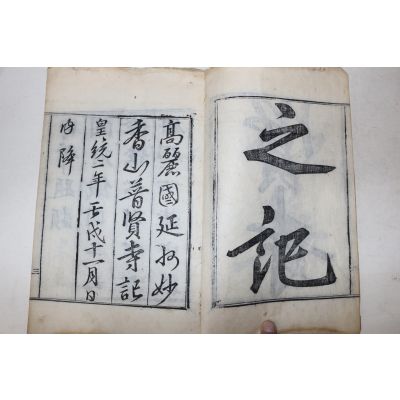 之記
高麗國延州妙
香山普賢寺記
皇統二年壬戌十一月日
内降